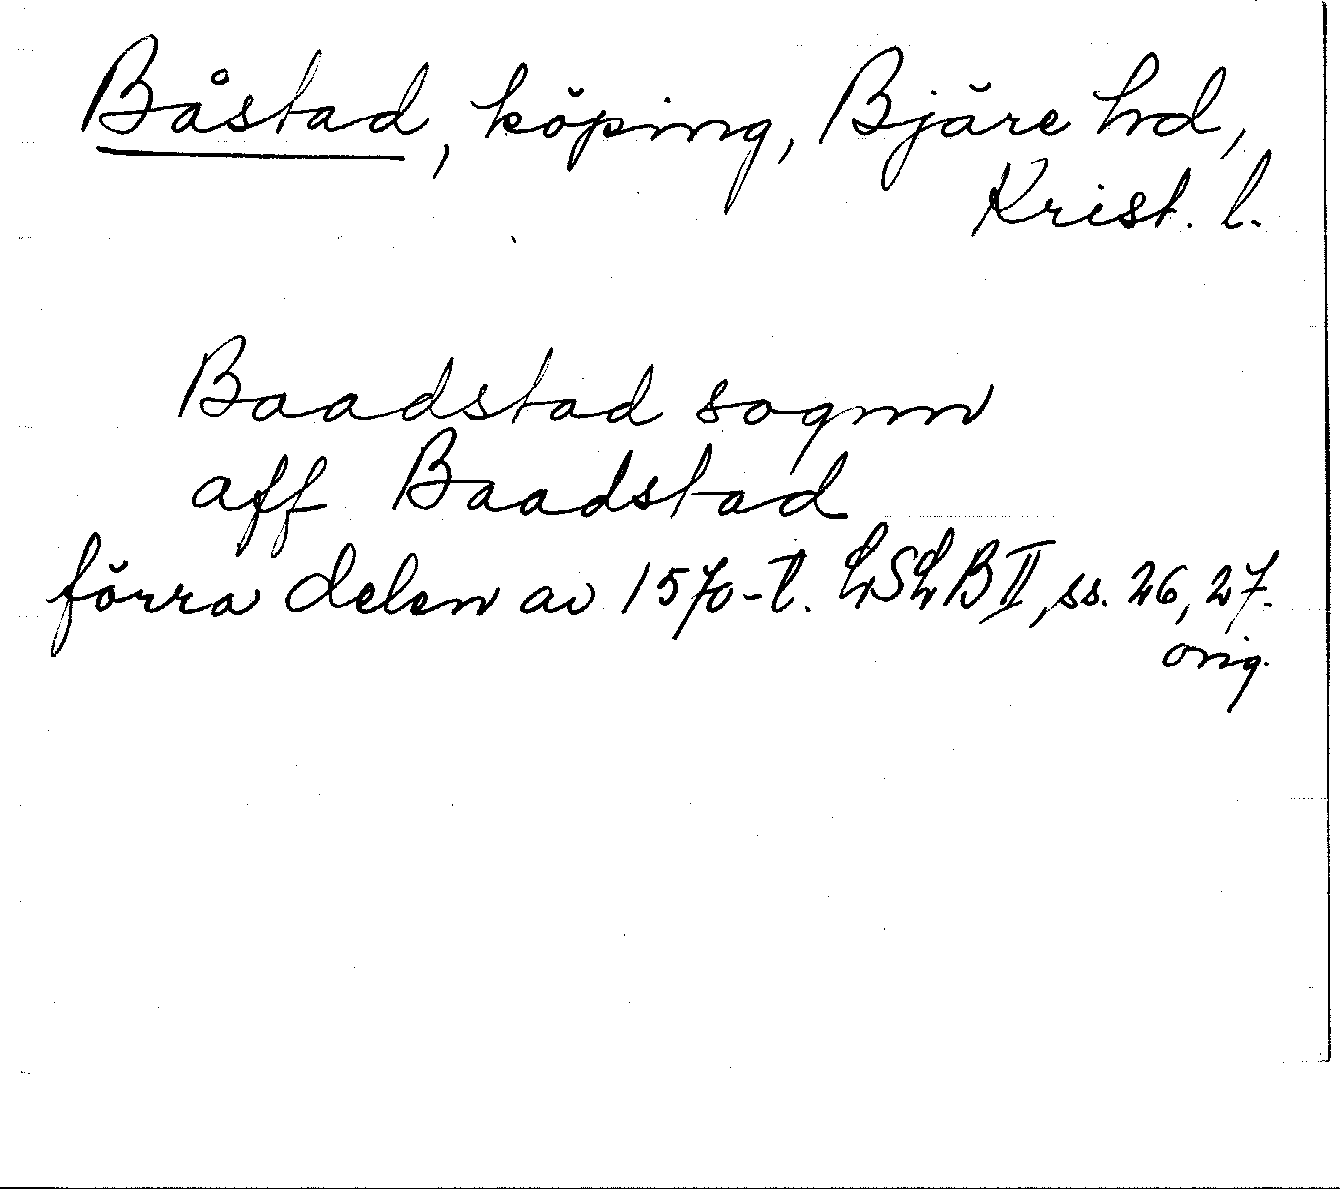 Båstad, köping, Bjäre hd,
Krist. l.
Baadstad sognn
aff Baadstad
förra delen av 1570-t. LSLB II, ss. 26, 27.
orig.